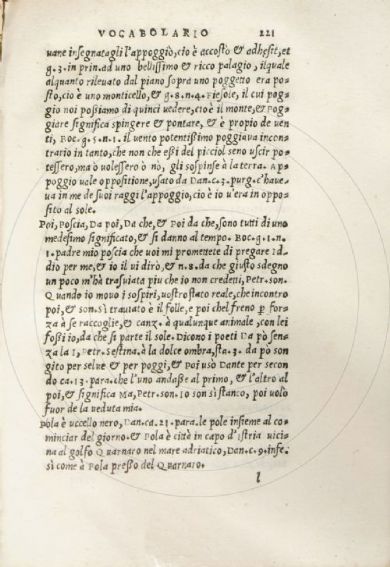 VOCABOLARIO 221
uare insegnatagli l'appoggiò, cio è accostò & adhesit, et
g. 3. in prin. ad uno bellissimo & ricco palagio, ilquale
alquanto rileuato dal piano sopra uno poggetto era po-
sto, cio è uno monticello, & g. 8. n. 4. Fiesole, il cui pog-
gio noi possiamo di quinci uedere, cio è il monte, & Pog-
giare significa spingere & pontare, & è propio de uen
ti, Boc. g. 5. n. 1. il uento potentissimo poggiaua incon-
trario in tanto, che non che essi del picciol seno uscir po-
tessero, ma ò uolessero ò nò, gli sospinse à la terra. Ap-
poggio uale oppositione, usato da Dan. c. 3. purg. c'haue-
ua in me de suoi raggi l'appoggio, cio è io u'era in oppo-
sito al sole.
Poi, Poscia, Da poi, Da che, & Poi da che, sono tutti di uno
medesimo significato, & si danno al tempo. Boc. g. 1. n.
1. padre mio poscia che uoi mi promettete di pregare Id-
dio per me, & io il ui dirò, & n. 8. da che giusto sdegno
un poco m'hà trasuiata piu che io non credetti, Petr. son.
Quando io mouo i sospiri, uostro stato reale, che incontro
poi, & son. sì trauiato è il folle, e poi chel freno p for-
za à se raccoglie, & canz. à qualunque animale, con lei
foss'io, da che si parte il sole. Dicono i poeti Da pò sen-
za la I, Petr. Sestina. à la dolce ombra, sta. 3. da pò son
gito per selue & per poggi, & Poi usò Dante per secon
do ca. 13. para. che l'uno andasse al primo, & l'altro al
poi, & significa Ma, Petr. son. Io son sì stanco, poi uolo
fuor de la ueduta mia.
Pola è uccello nero, Dan. ca. 21. para. le pole insieme al co-
minciar del giorno. & Pola è città in capo d'istria uici-
na al golfo Quarnaro nel mare adriatico, Dan. c. 9. infe.
sì come à Pola presso del Quarnaro.
l